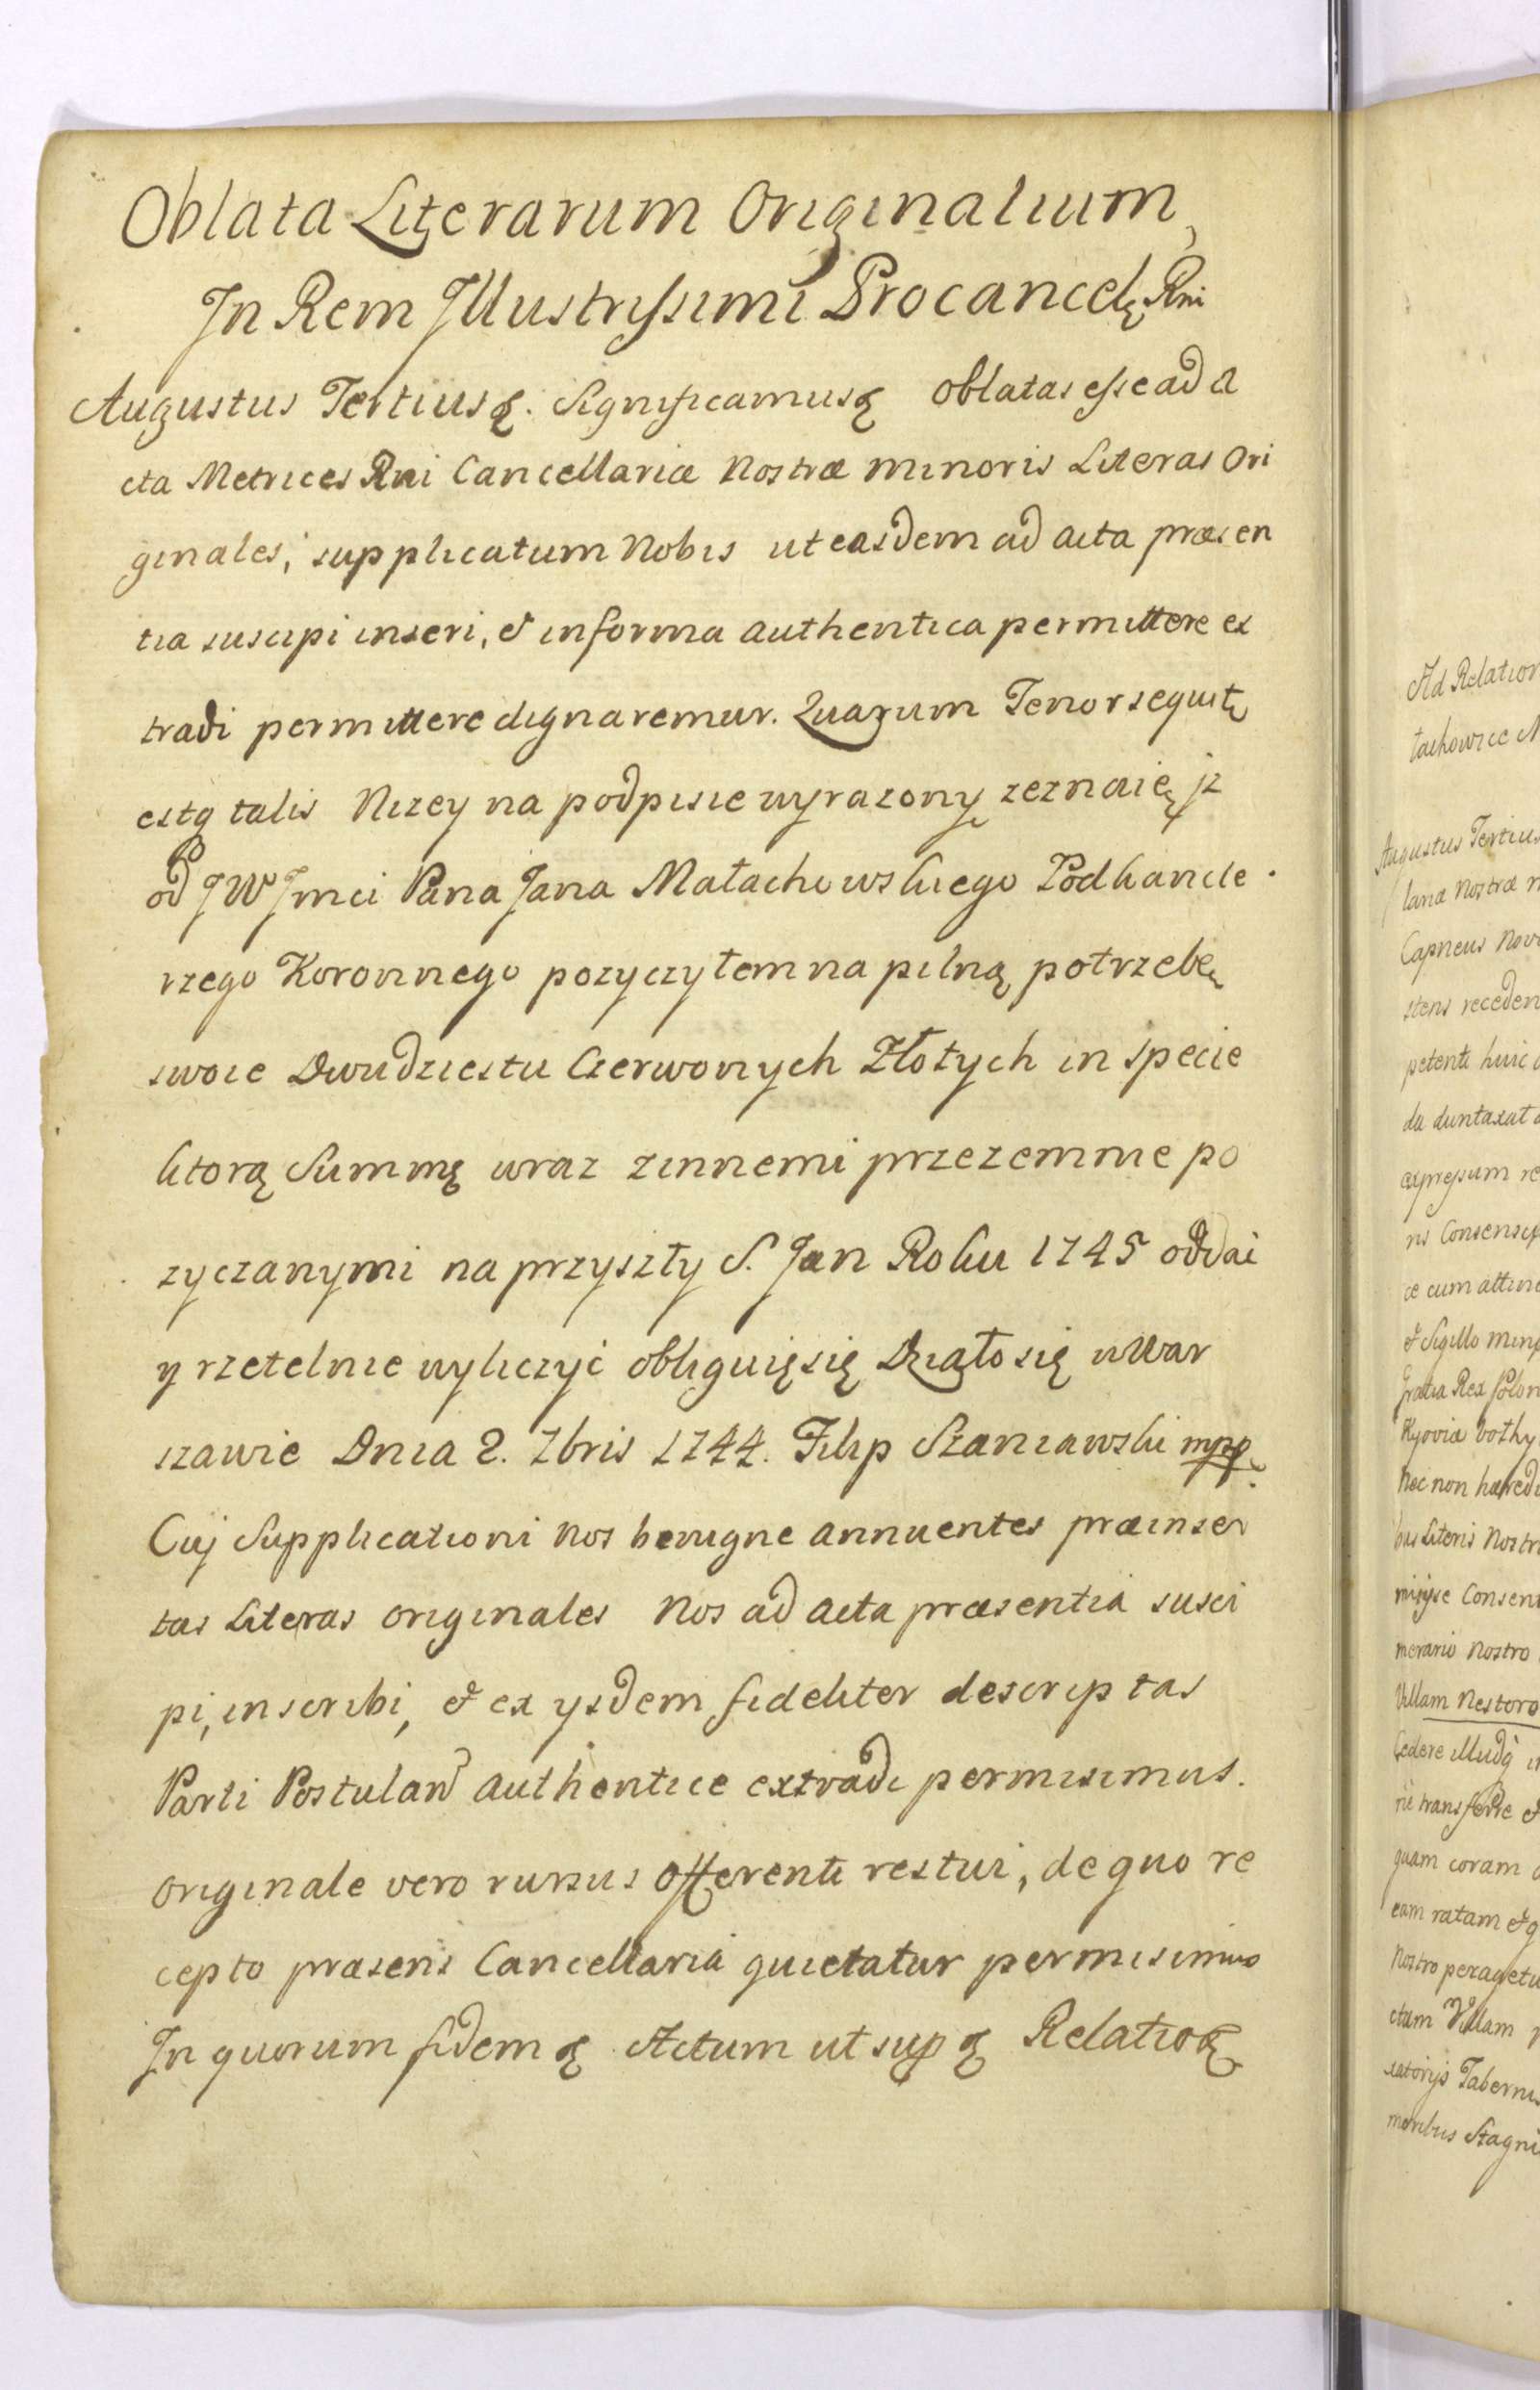 Oblata Literarum Originalium,
In Rem Illustrissimi Procancel: Rni
Augustus Tertius &. Significamus & oblatas esse ad a
cta Metrices Rni Cancellariæ Nostræ minoris Literas Ori
ginales, supplicatum Nobis ut easdem ad acta præsen
tia suscipi inseri, et in forma authentica permittere ex
tradi permittere dignaremur. Quarum Tenor sequit
estq talis Nizey na podpisie wyrazony zeznaię jz
od JW Jmci Pana Jana Małachowskiego Podkancle
rzego Koronnego pozyczyłem na pilną potrzebę
swoie Dwudziestu Czerwonych Złotych in specie
ktorą Summę wraz z innemi przezemnie po
zyczanymi na przyszły S. Jan Roku 1745 oddać
y rzetelnie wyliczyć obliguię się Działo się w War
szawie Dnia 2. 7bris 1744. Filip Szaniawski mpp.
Cuj Supplicationi Nos benigne annuentes præinser
tas Literas originales Nos ad acta præsentia susci
pi, inscribi, et ex ysdem fideliter descriptas
Parti Postulan authentice extradi permisimus.
Originale vero rursus Offerenti restui, de quo re
cepto præsens Cancellaria quietatur permisimus
In quorum fidem & Actum ut sup & Relatio &
Ad Relation
tachowice
Augustus Tertius
petenti huic
expressum
ns Consensu
æ cum attine
et Sigillo
Gratia Rex Polon
Nec non
Literis Nostri
Consen
merario Nostro
Villam Nestoro
Cedere illudq
transferre et
quam coram
eam ratam et
Nostro peragetu
ctam Villam
Tabernis